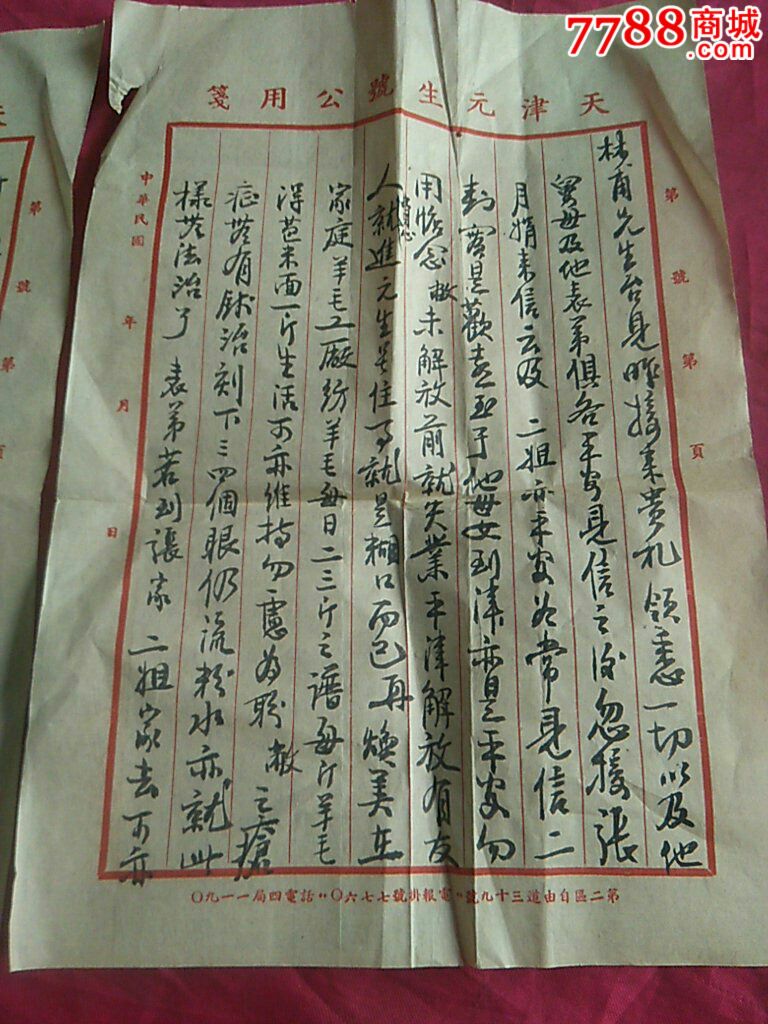 7788商城
.com
天津元生號公用箋
第 號 第 頁
林甫先生台見昨接来贵札领悉一切以及他
舅母及他表弟俱各平安見信之後忽接張
月娟来信云及 二姐亦平安如常見信二
封實是歡喜至于他母女到津亦是平安勿
用惦念 敝未解放前就失業平津解放有友
人就進元生号住了就是糊口而已再 煥美在
家庭羊毛工廠紡羊毛每日二三斤之譜每斤羊毛
得苞米面一斤生活可亦維持勿慮為盼 敝之瘡
症無有錢治刻下三四個眼仍流粉水亦就此
樣無法治了 表弟若到張家 二姐家去可亦
中華民國 年 月 日
第二區自由道三十九號‧‧電報掛號七七六〇‧‧話電四局一一九〇
第 號 第